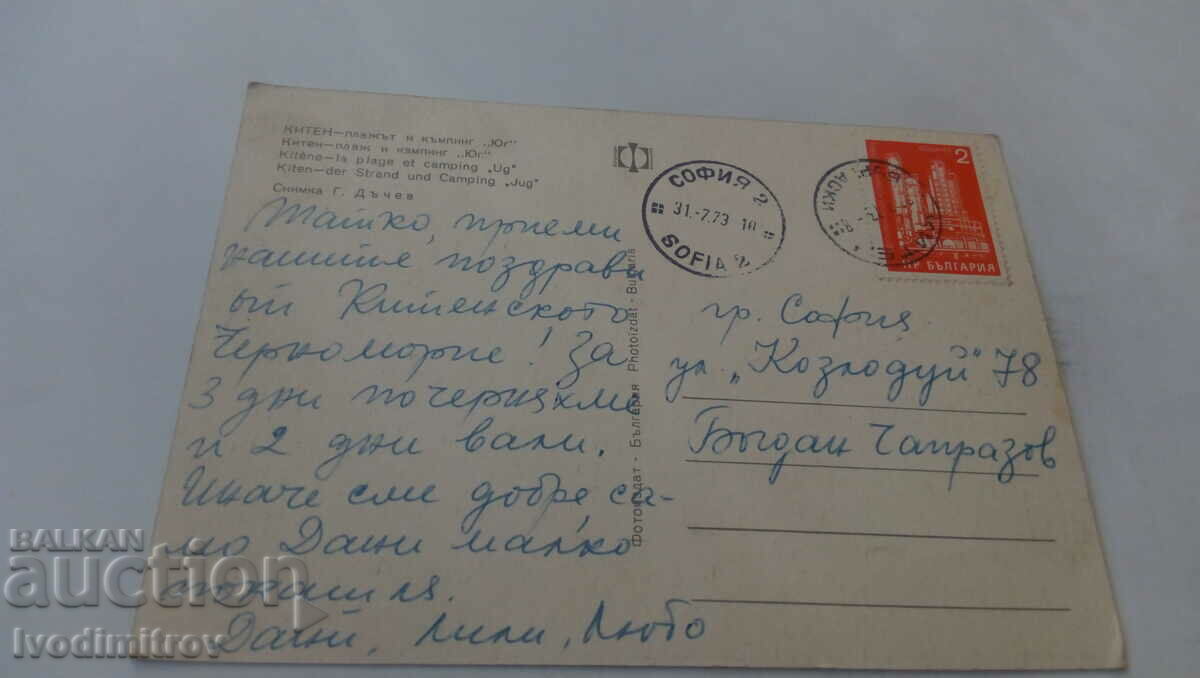 КИТЕН—плажът и къмпинг „Юг"
Китен—пляж и кемпинг „Юг"
Kitène—la plage et camping „Ug"
Kiten—der Strand und Camping „Jug"
Снимка Г. Дъчев
Татко, приеми
нашите поздрави
от Китенското
Черноморие! За
3 дни почерняхме
и 2 дни валя.
Иначе сме добре, са-
мо Дани малко
покашля.
Дани, Лили, Любо
Фотоиздат - България Photoizdat - Bulgaria
СОФИЯ 2
31.-7.73 10
SOFIA 2
2
НР БЪЛГАРИЯ
гр. София
ул. „Козлодуй" 78
Богдан Чапразов
BALKAN
auction
Ivodimitrov